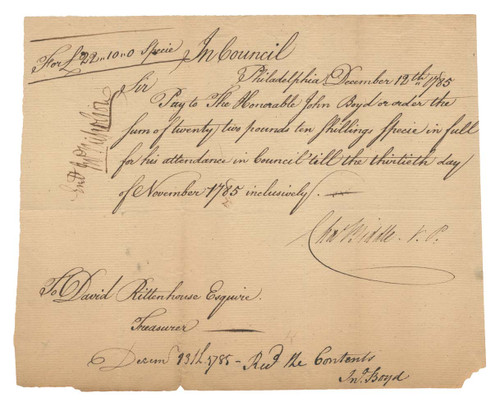 For £22 „ 10 „ 0 Specie
In Council
Philadelphia, December 12th 1785
Sir
Pay to The Honorable John Boyd or order the
sum of twenty two pounds ten shillings specie in full
for his attendance in Council 'till the thirtieth day
of November 1785 inclusively.
Chas Biddle. V. P.
To David Rittenhouse Esquire.
Treasurer
Decem 13th 1785 - Recd the Contents
Jno Boyd